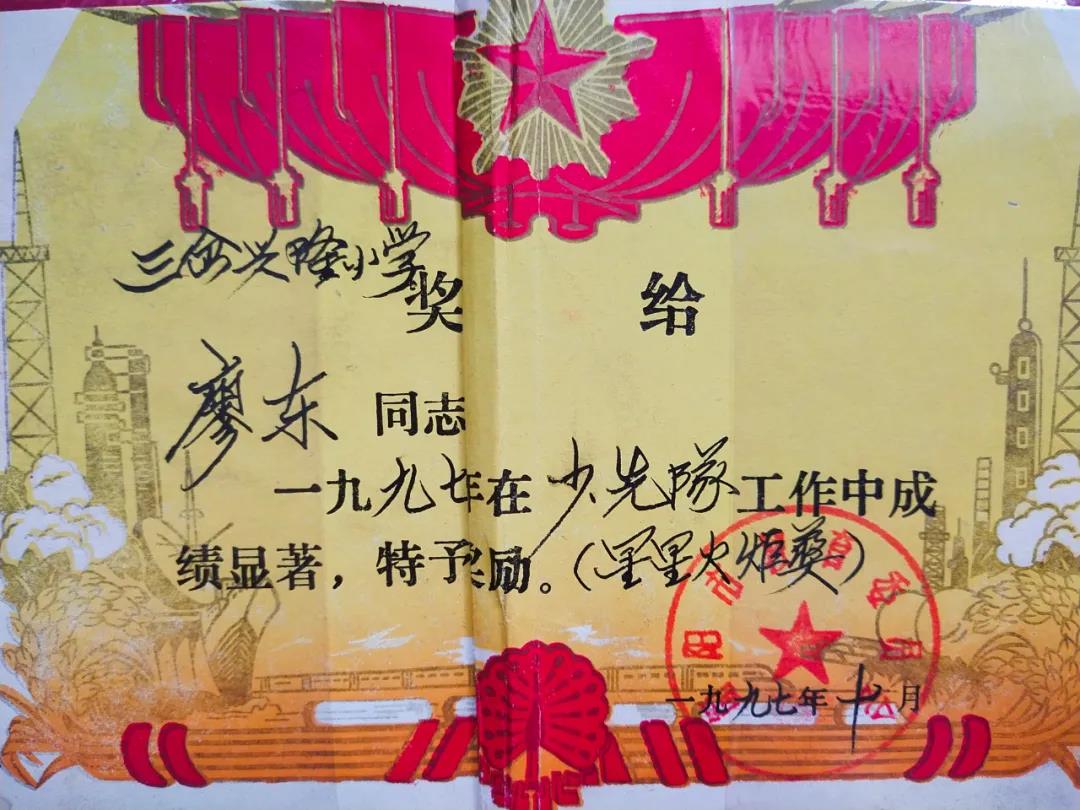 三仓兴隆小学
奖给
廖东 同志
一九九七年在少先隊工作中成
绩显著，特予奖励。（星星火炬奖）
一九九七年十月